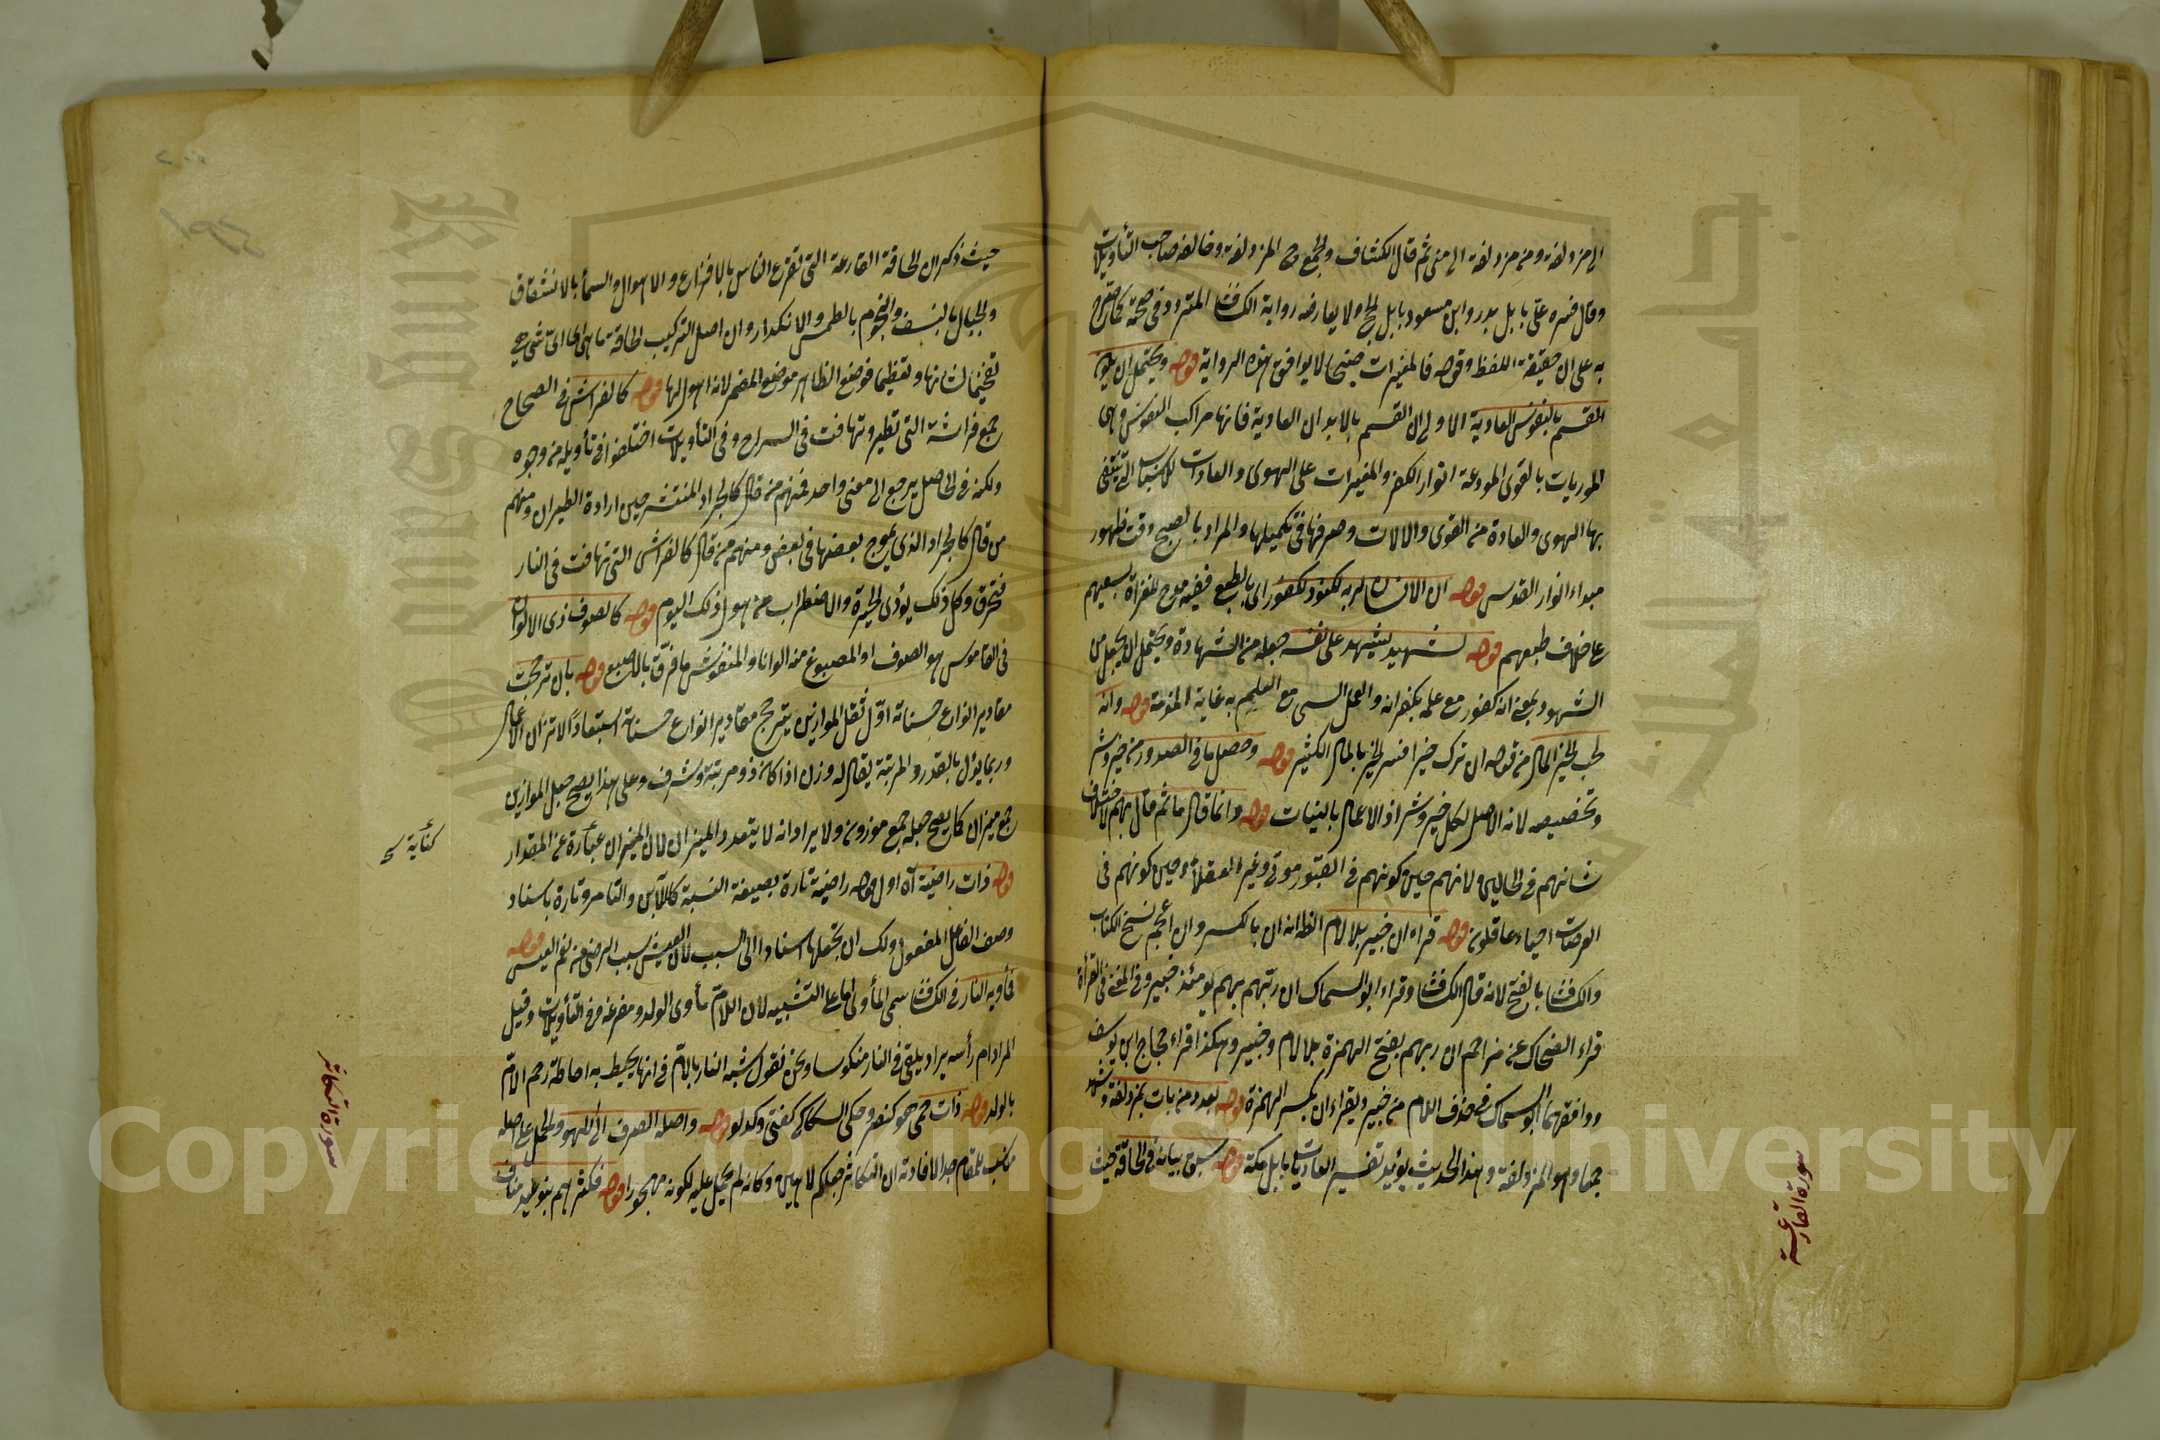 الى مزدلفة ومن مزدلفة الى منى ثم قال الكشاف والجمع هى المزدلفة وخالفه صاحب التأويلات
وقال فسره على بابل بدر وابن مسعود بابل الحج ولا يعارضه رواية الكشاف المتردد فى صحته كما صرح
به على ان حقيقة اللفظ وقوله فالمغيرات صبحا لا يوافق هذه الرواية قوله ويحتمل ان يكون
القسم بالنفوس العادية الاولى ان القسم بالابدان العادية فانها مراكب النفوس وهى
الموريات بالقوى المودعة انوار الفكر والمغيرات على الهوى والعادات
بها الهوى والعادة من القوى والالات وصرفها فى تكميلها والمراد بالصبح وقت ظهور
مبداء انوار القدس قوله ان الانسان لربه لكنود لكفور اى بالطبع ففيه مدح للغزاة بسعيهم
على خلاف طبعهم قوله لشهيد يشهد على نفسه جعله من الشهادة ويحتمل ان يجعل من
الشهود بمعنى انه كفور مع علمه بكفرانه والعمل السىء مع العلم به غاية المذمة قوله وانه
لحب الخير المال من قوله ان ترك خيرا فسر الخير بالمال الكثير قوله وحصل ما فى الصدور من خير وشر
وتخصيصه لانه الاصل لكل خير وشر اذ الاعمال بالنيات قوله وانما قال ما ثم قال بهم لاختلاف
شانهم فى الحالين ولانهم حين كونهم فى القبور موتى وغير العقلاء وحين كونهم فى
العرصات احياء عاقلون قوله قراء ان خبير بلا لام الظ انه ان بالكسر وان اعجم نسخ الكتاب
والكشاف بالفتح لانه قال الكشاف وقراء ابو السماك ان ربهم بهم يومئذ خبير وفى المغنى فى القراة
قراء الضحاك عن مزاحم ان ربهم بفتح الهمزة بلا لام وخبير وهكذا قراء حجاج ابن يوسف
ووافقهما ابو السماك فى حذف اللام من خبير ويقراء ان بكسر الهمزة قوله بعدد من بات بمزدلفة وشهد
جمعا وهو المزدلفة وهذا الحديث يؤيد تفسير العاديات بابل مكة قوله سبق بيانه فى الحاقة حيث
سورة القارعة
حيث ذكر ان الحاقة القارعة التى تقرع الناس بالافزاع والاهوال والسماء بالانشقاق
والجبال بالنسف والنجوم بالطمس والانكدار وان اصل التركيب الحاقة ما هى اى اى شىء هى
تفخيما لشانها وتعظيما فوضع الظاهر موضع المضمر لانه اهول لها قوله كالفراش فى الصحاح
جمع فراشة التى تطير وتهافت فى السراج وفى التأويلات اختلفوا فى تأويله من وجوه
ولكنه فى الحاصل يرجع الى معنى واحد فمنهم من قال كالجراد المنتشر حين ارادة الطيران ومنهم
من قال كالجراد الذى يموج بعضها فى بعض ومنهم من قال كالفراش التى تهافت فى النار
فتحرق وكل ذلك يؤدى الحيرة والاضطراب من هول ذلك اليوم قوله كالصوف ذى الالوان
فى القاموس هو الصوف او المصبوغ منه الوانا والمنفوش ما فرق بالاصبع قوله بان ترجحت
مقادير انواع حسناته اوّل ثقل الموازين بترجح مقادير انواع حسناته استبعادا لاتزان الاعمال
وربما يؤل بالقدر والمرتبة يقال له وزن اذا كان ذو مرتبة وشرف وعلى هذا يصح جعل الموازين
جمع ميزان كما يصح جعله جمع موزون ولا يراد انه لا يتعدد الميزان لان الميزان عبارة عن المقدار
كناية
قوله ذات راضية اه اول قوله راضية تارة بصيغة النسبة كاللابن والتامر وتارة باسناد
وصف الفاعل المفعول ولك ان تجعلها اسنادا الى السبب لان العيش سبب الرضى عنه قوله
فمأويه النار فى الكشاف سمى المأوى اما على التشبيه لان الام مأوى الولد ومفزعه وفى التأويلات وقيل
المراد ام رأسه يراد يلقى فى النار منكوسا ونحن نقول شبه النار بالام فى انها يحيط به احاطة رحم الام
بالولد قوله ذات حمى حمى كنصر وحكى السكاكى قوله واصله الصرف الى اللهو والحمل على اصله
مناسب للمقام جدا لافادته ان التكاثر جعلكم لاهين وكانه لم يحمل عليه لكونه مهجورا قوله فكثرهم بنو عبد مناف
سورة التكاثر
Copyright © King Saud University
King Saud University